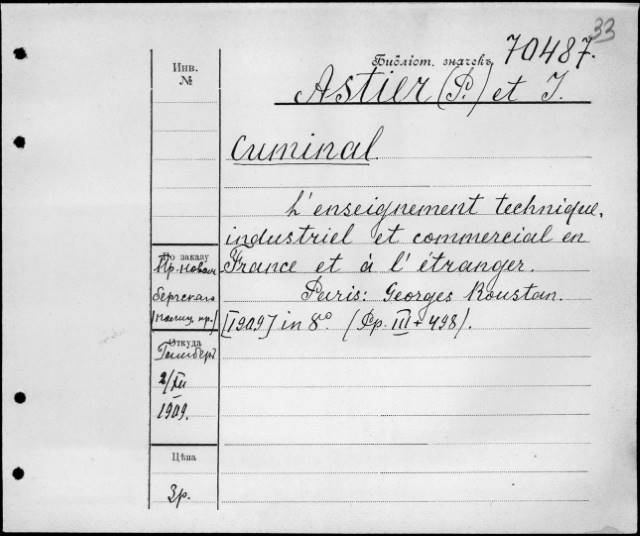 33
Инв.
№
Библіот. значекъ 70487.
Astier (P.) et I.
Cuminal.
L'enseignement technique,
industriel et commercial en
France et à l'étranger.
Paris: Georges Roustan.
[1909] in 8°. (Pp. III + 498).
По заказу
бергскаго
Откуда
2/XII
1909.
Цѣна
3р.